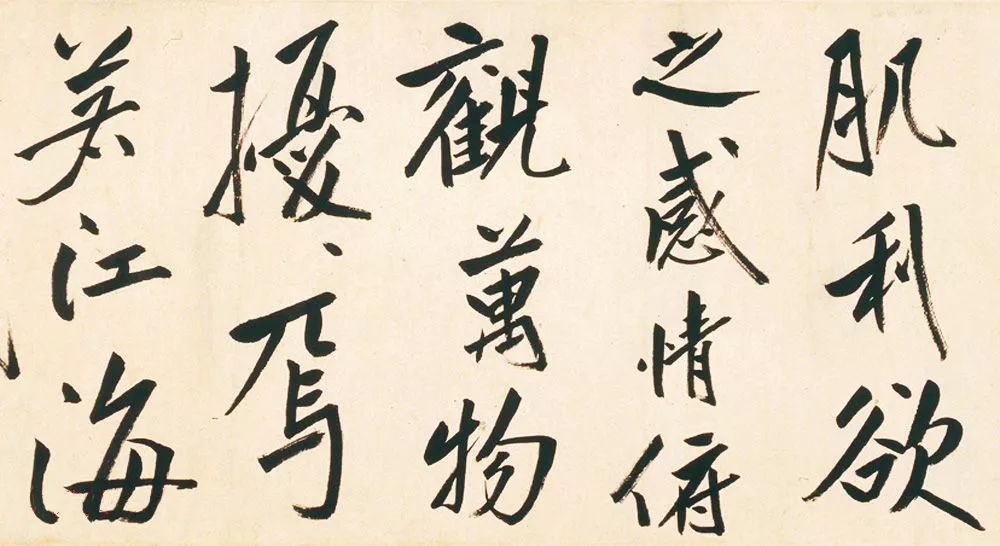 肌利欲
之感情俯
觀萬物
擾〻焉
若江海